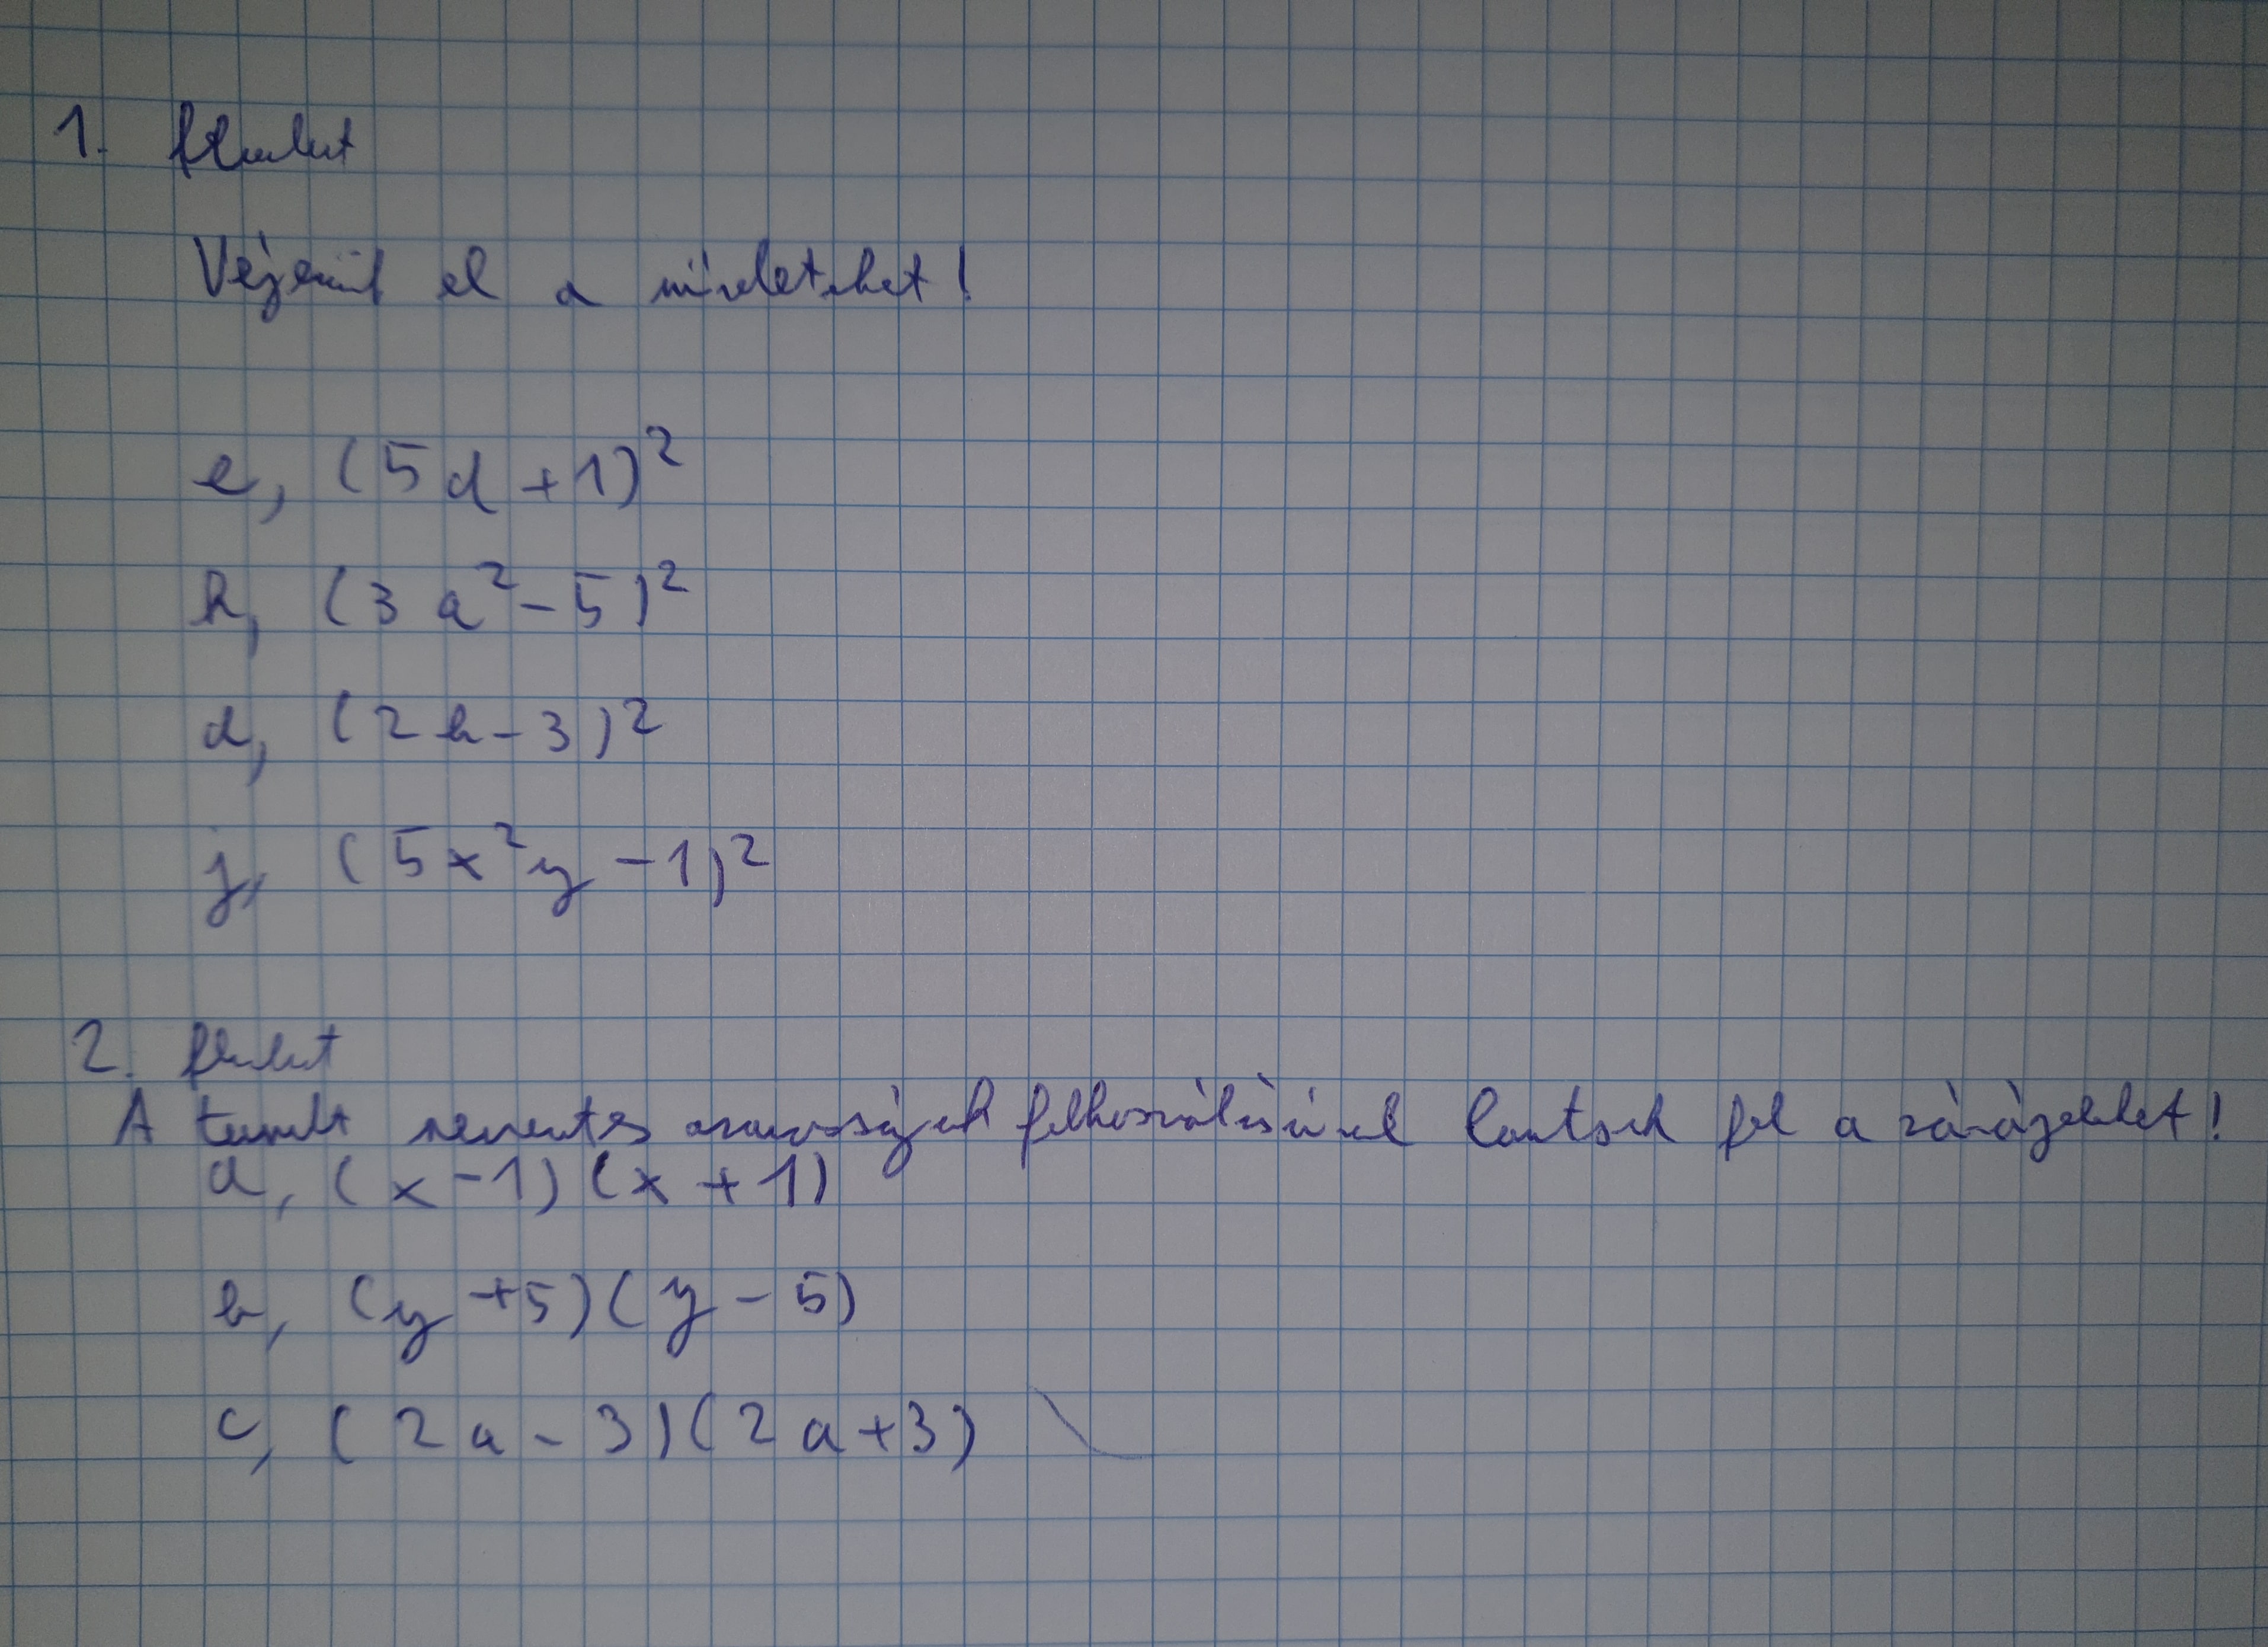 1. feladat
Végezzük el a műveleteket!
e, (5d+1)²
h, (3a²-5)²
d, (2b-3)²
j, (5x²y-1)²
2. feladat
A tanult nevezetes azonosságok felhasználásával bontsuk fel a zárójeleket!
a, (x-1)(x+1)
b, (y+5)(y-5)
c, (2a-3)(2a+3)